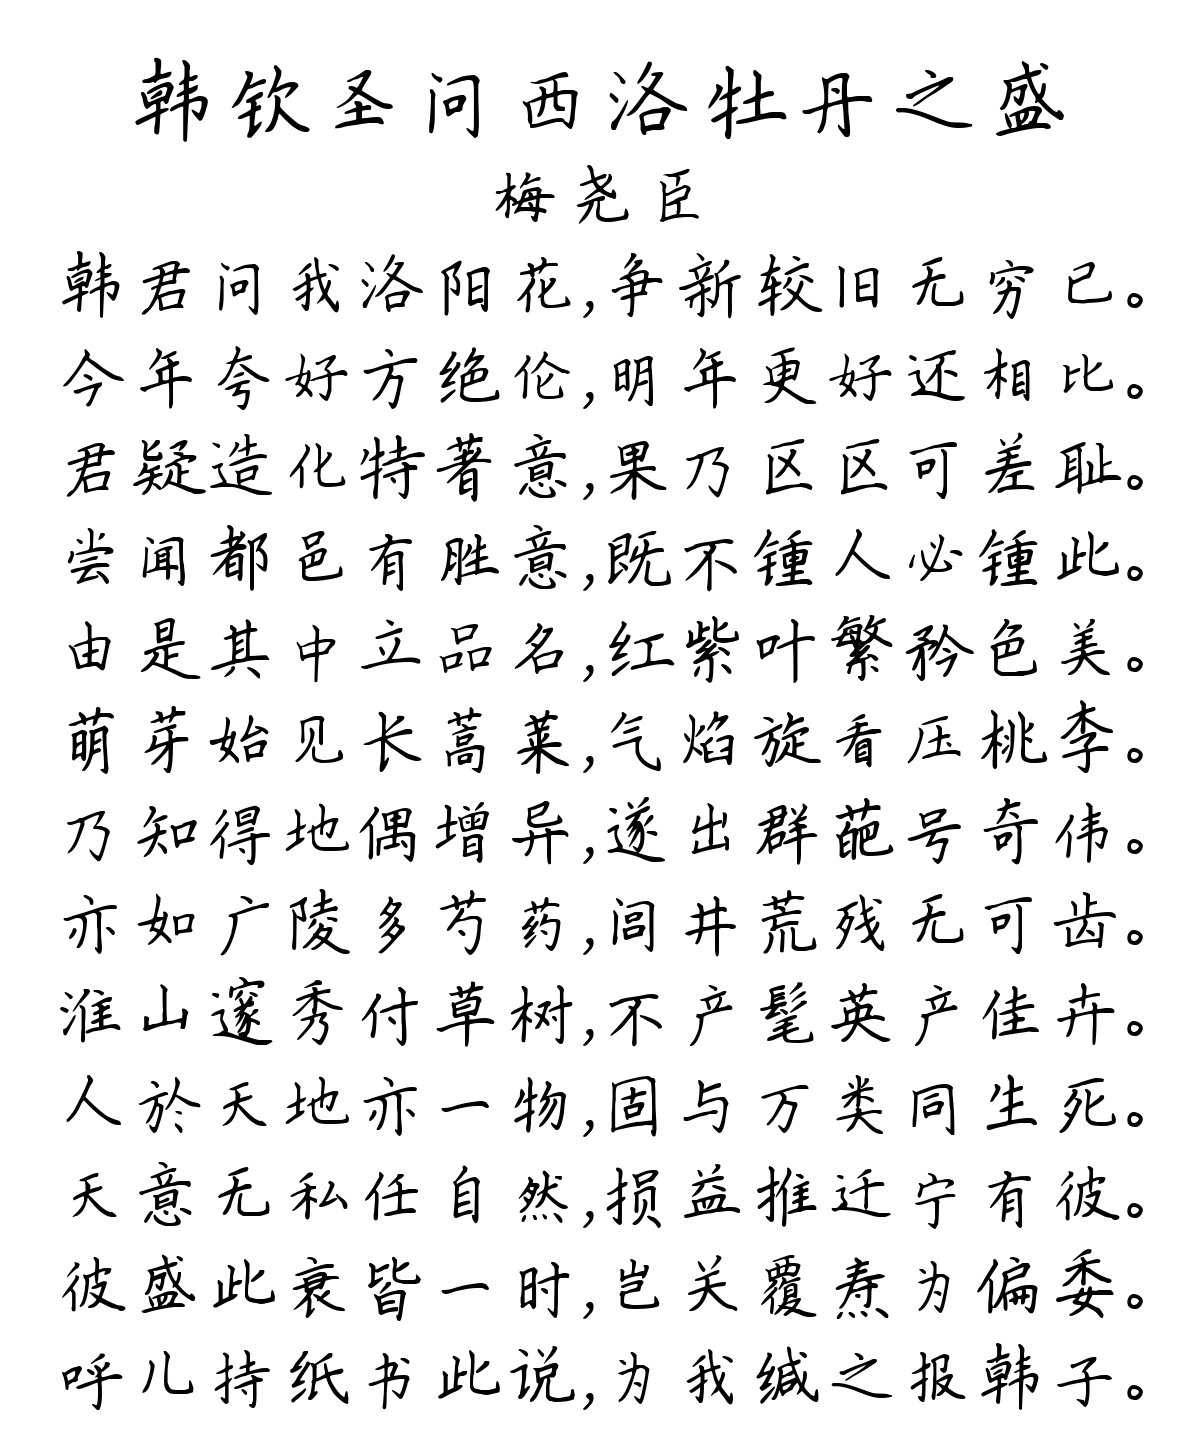 韩钦圣问西洛牡丹之盛
梅尧臣
韩君问我洛阳花,争新较旧无穷已。
今年夸好方绝伦,明年更好还相比。
君疑造化特著意,果乃区区可羞耻。
尝闻都邑有胜意,既不锺人必锺此。
由是其中立品名,红紫叶繁矜色美。
萌芽始见长蒿莱,气焰旋看压桃李。
乃知得地偶增异,遂出群葩号奇伟。
亦如广陵多芍药,闾井荒残无可齿。
淮山邃秀付草树,不产髦英产佳卉。
人於天地亦一物,固与万类同生死。
天意无私任自然,损益推迁宁有彼。
彼盛此衰皆一时,岂关覆焘为偏委。
呼儿持纸书此说,为我缄之报韩子。